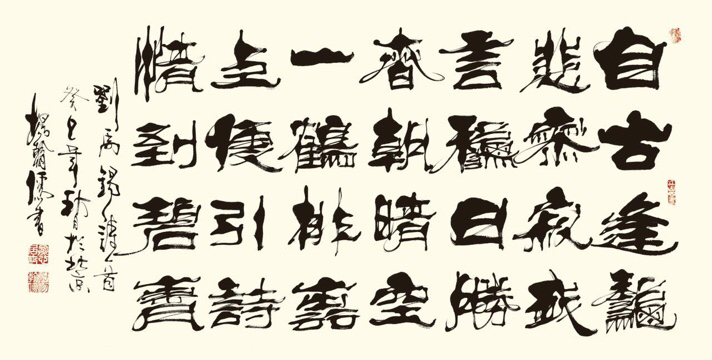 自古逢龝
悲寥寂我
言龝日勝
春朝晴空
一鶴排雲
上便引詩
情到碧霄
劉禹錫詩一首
癸巳年秋月於北京